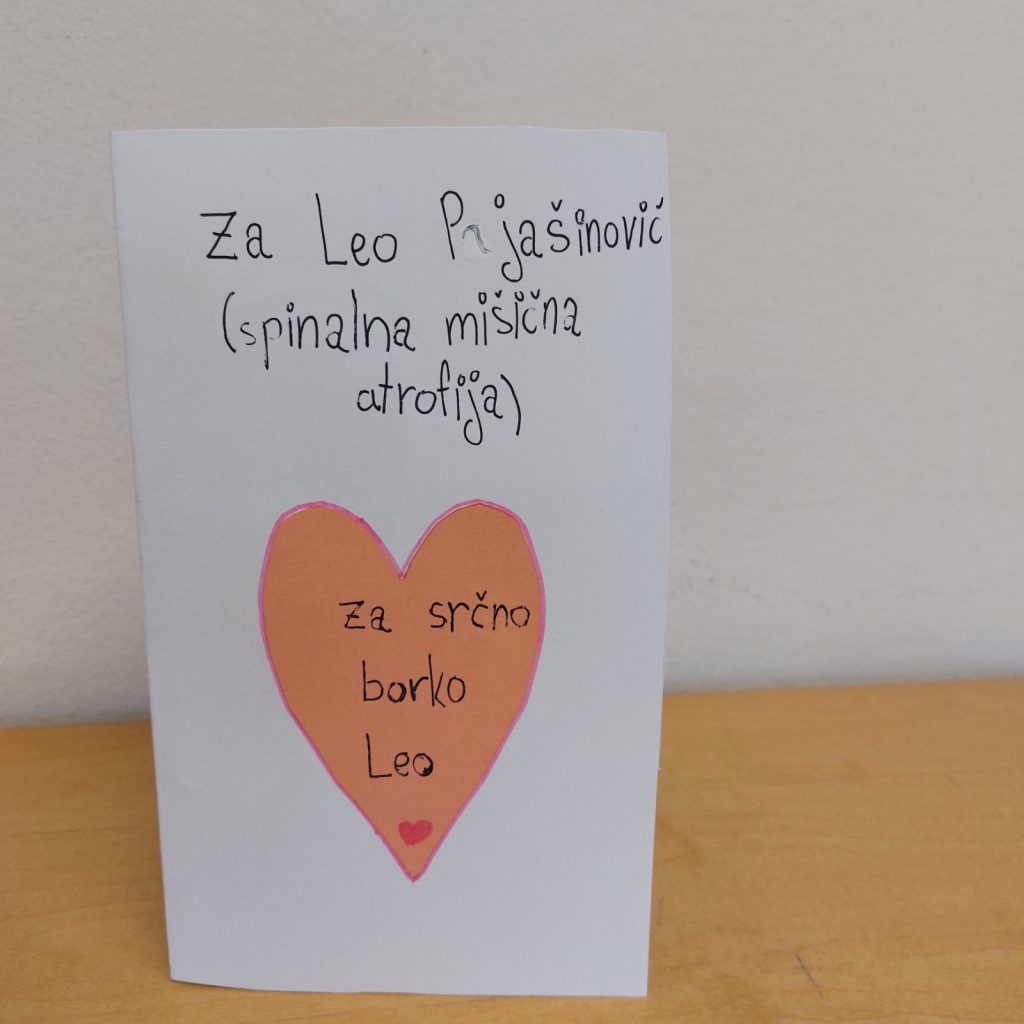 Za Leo
(spinalna mišična
atrofija)
za srčno
borko
Leo